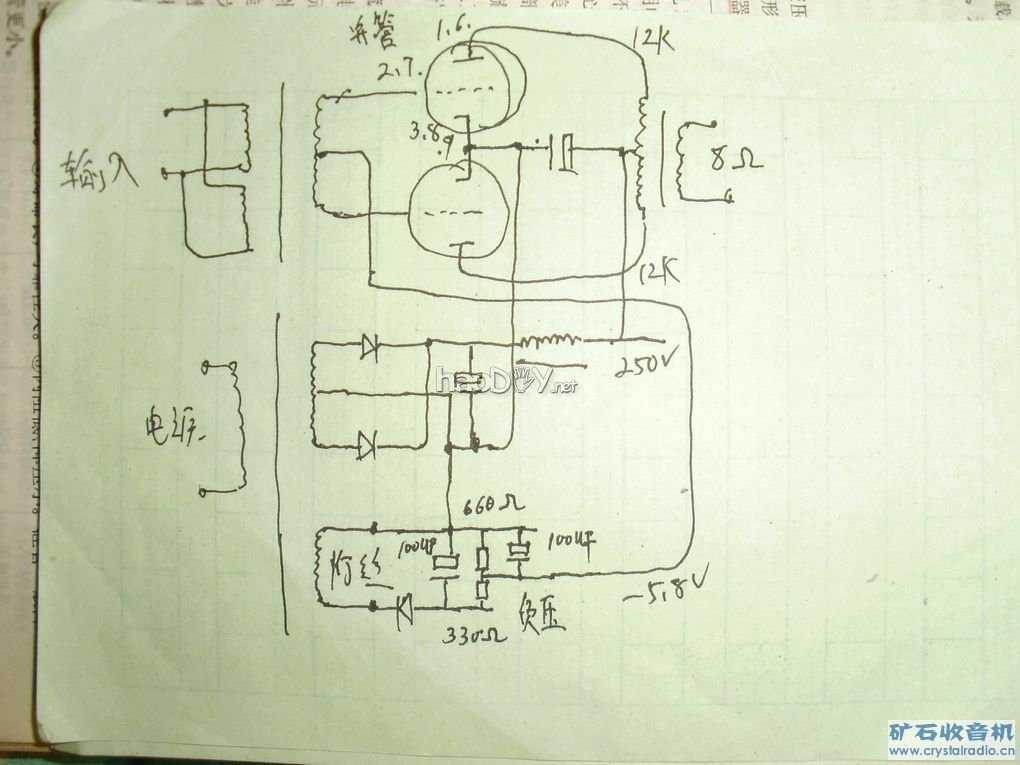 并管
1.6.
12K
2.7.
3.8
.9
输入
8Ω
12K
250V
haoDIY.net
电源
660Ω
100UF
100UF
灯丝
-5.8V
330Ω
负压
矿石收音机
www.crystalradio.cn